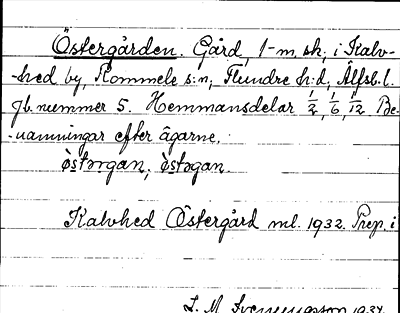 Östergården. Gård, 1-m, sk, i Kalv-
-hed by, Rommele s:n, Flundre h:d, Älfsb. l.
Jb. nummer 5. Hemmansdelar 1/2, 1/6, 1/12. Be-
-nämningar efter ägarne.
östərgan, östəgan.
Kalvhed Östergård ml. 1932. Prep. i
L. M. Svenungsson 1934.